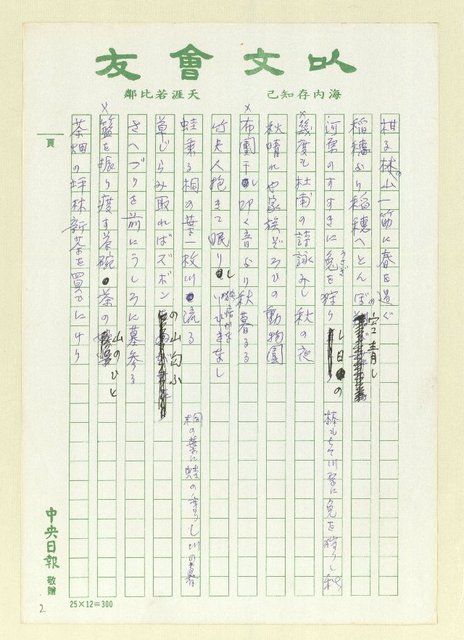 以文會友
海内存知己 天涯若比鄰
柑る林山一筋に春を過ぐ
稲穂より稲穂へとんぼの空青し
河原のすすきに兎を狩りし日の
棒もちて川原に兎を狩りし秋
×幾度も杜甫の詩詠みし秋の夜
秋晴れや家族ぞろひの動物園
×布團干し叩く音より秋暮るる
竹夫人抱きて眠りし
蛙乗る桐の葉一枚川流る
桐の葉に蛙の乗りし川の暮
草じらみ取ればズボンの山匂ふ
さへづりを前にうしろに墓参る
×籃を振り渡す茶碗茶の山のひと
茶畑の坪林新茶を買ひにけり
頁
中央日報 敬贈
25×12=300
2